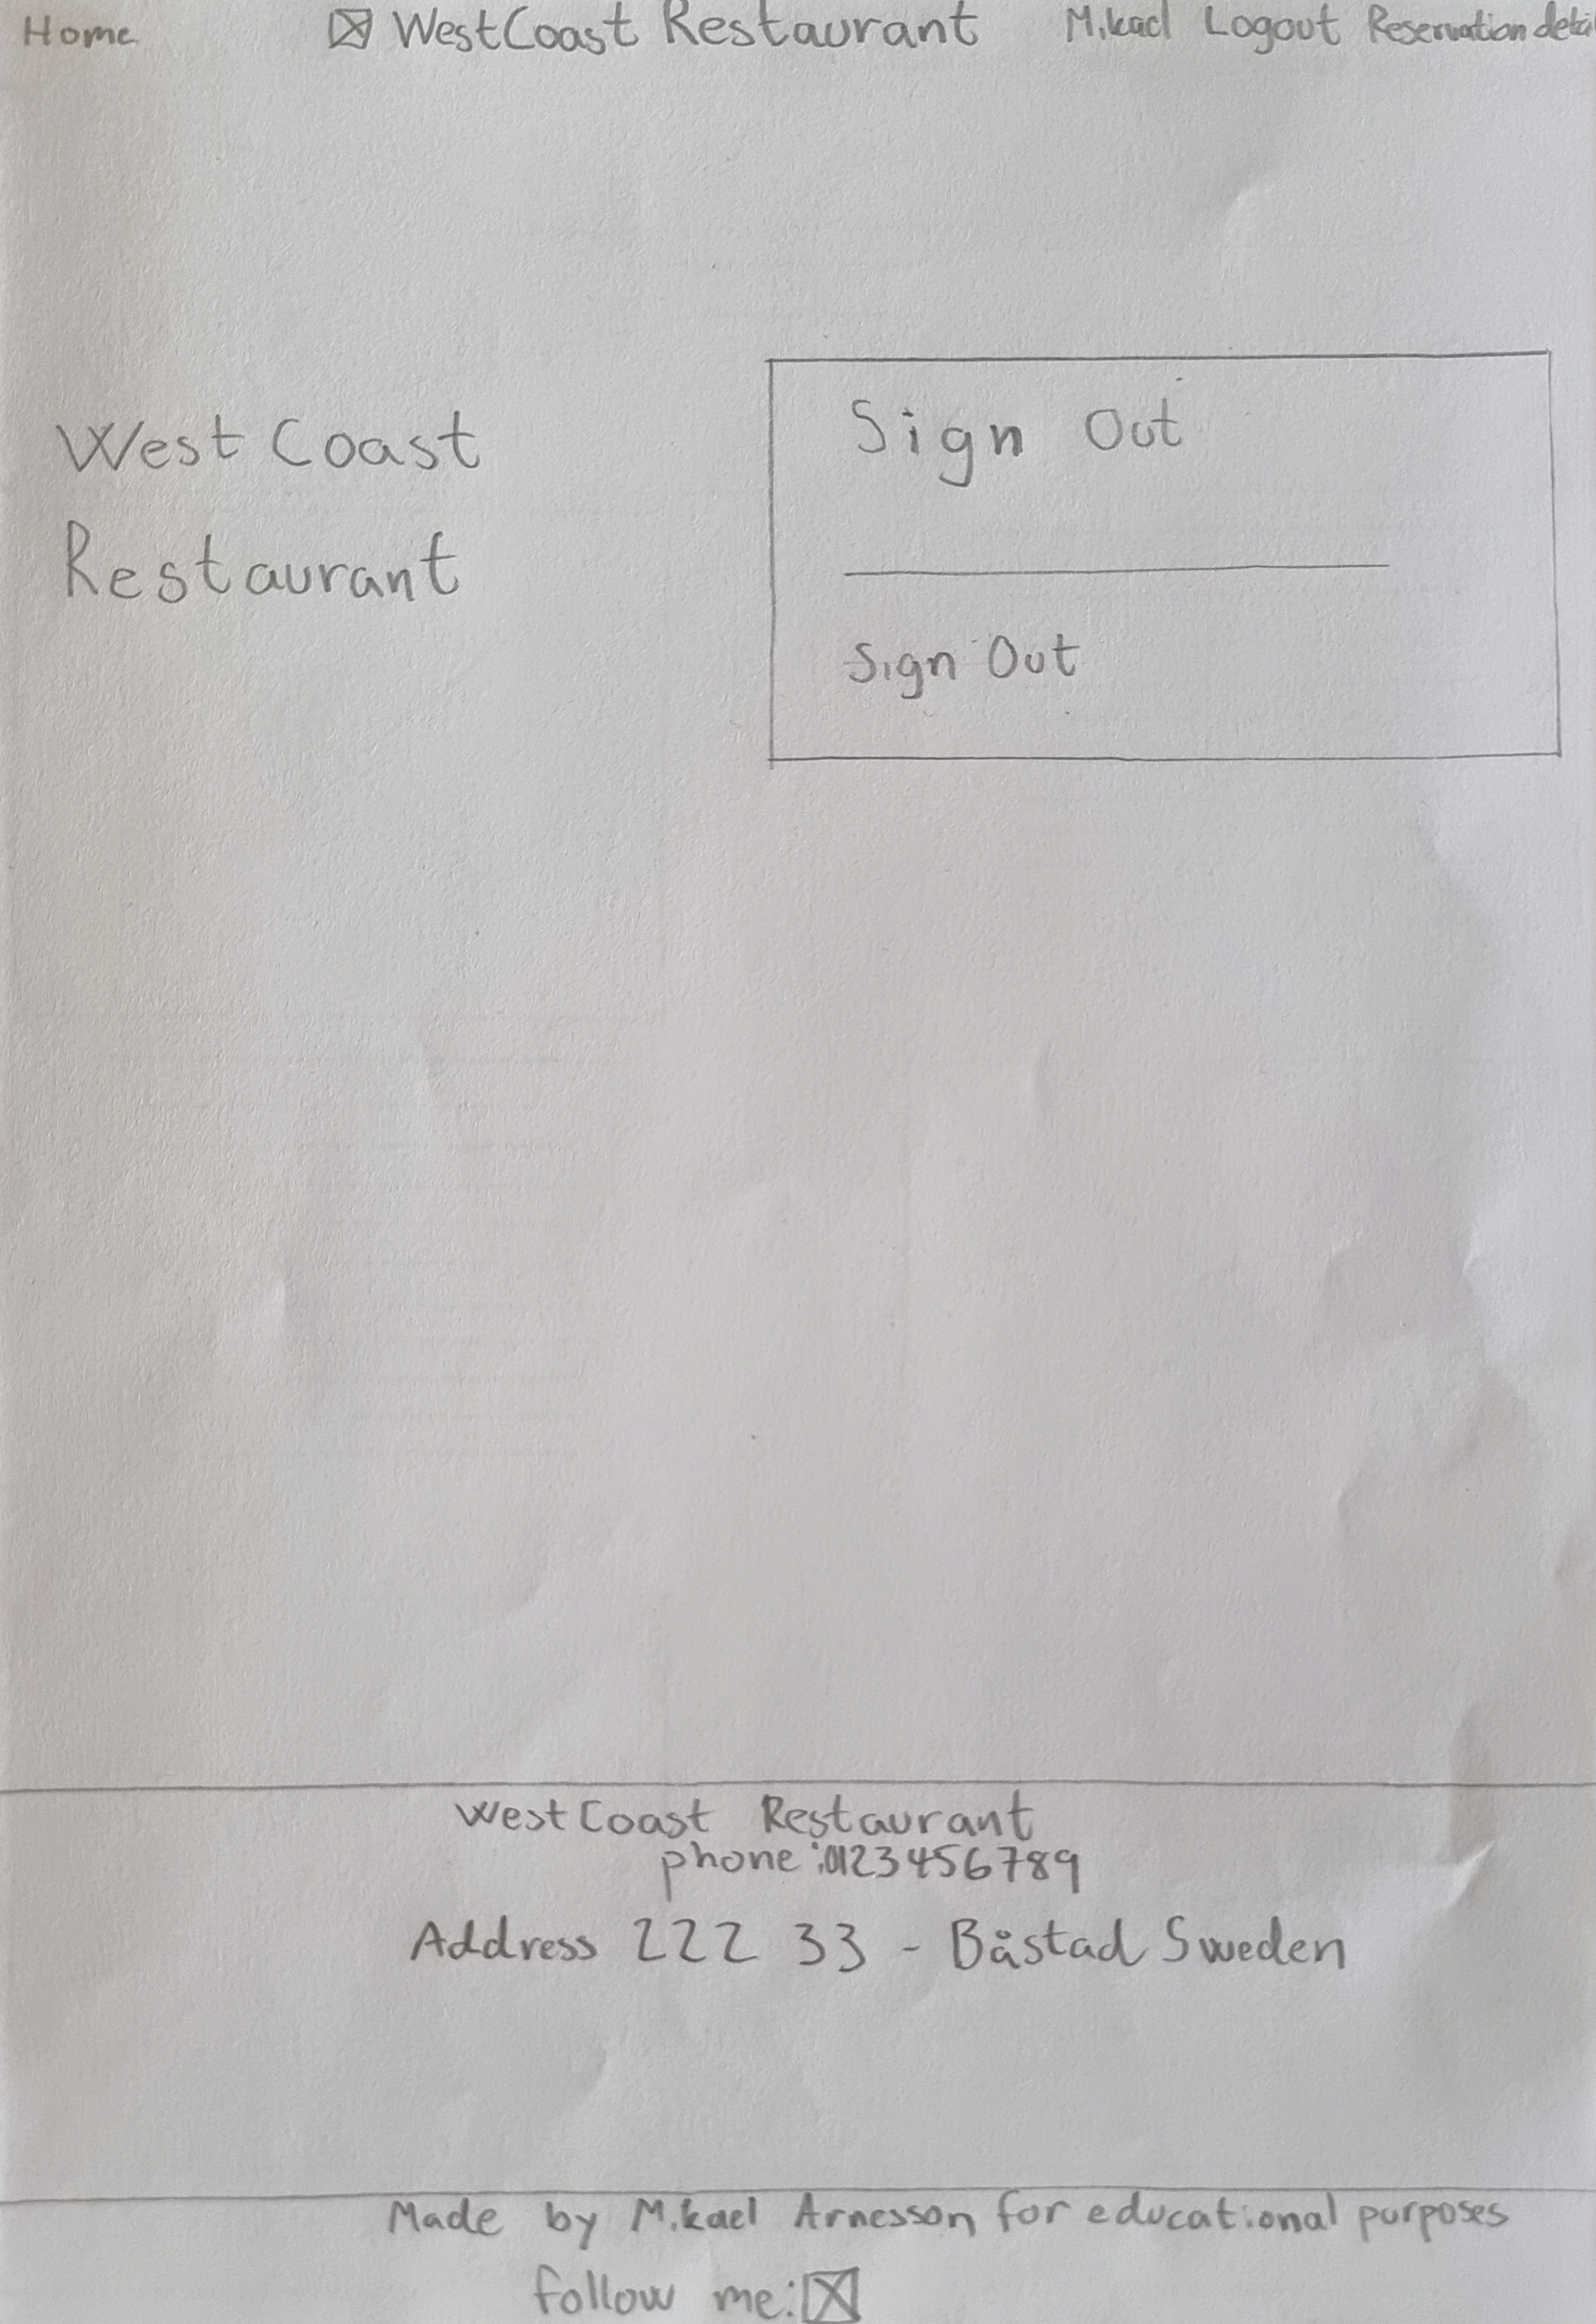 Home WestCoast Restaurant Mikael Logout Reservation
West Coast
Restaurant
Sign Out
Sign Out
West Coast Restaurant
phone:0123456789
Address 222 33 - Båstad Sweden
Made by Mikael Arnesson for educational purposes
follow me: